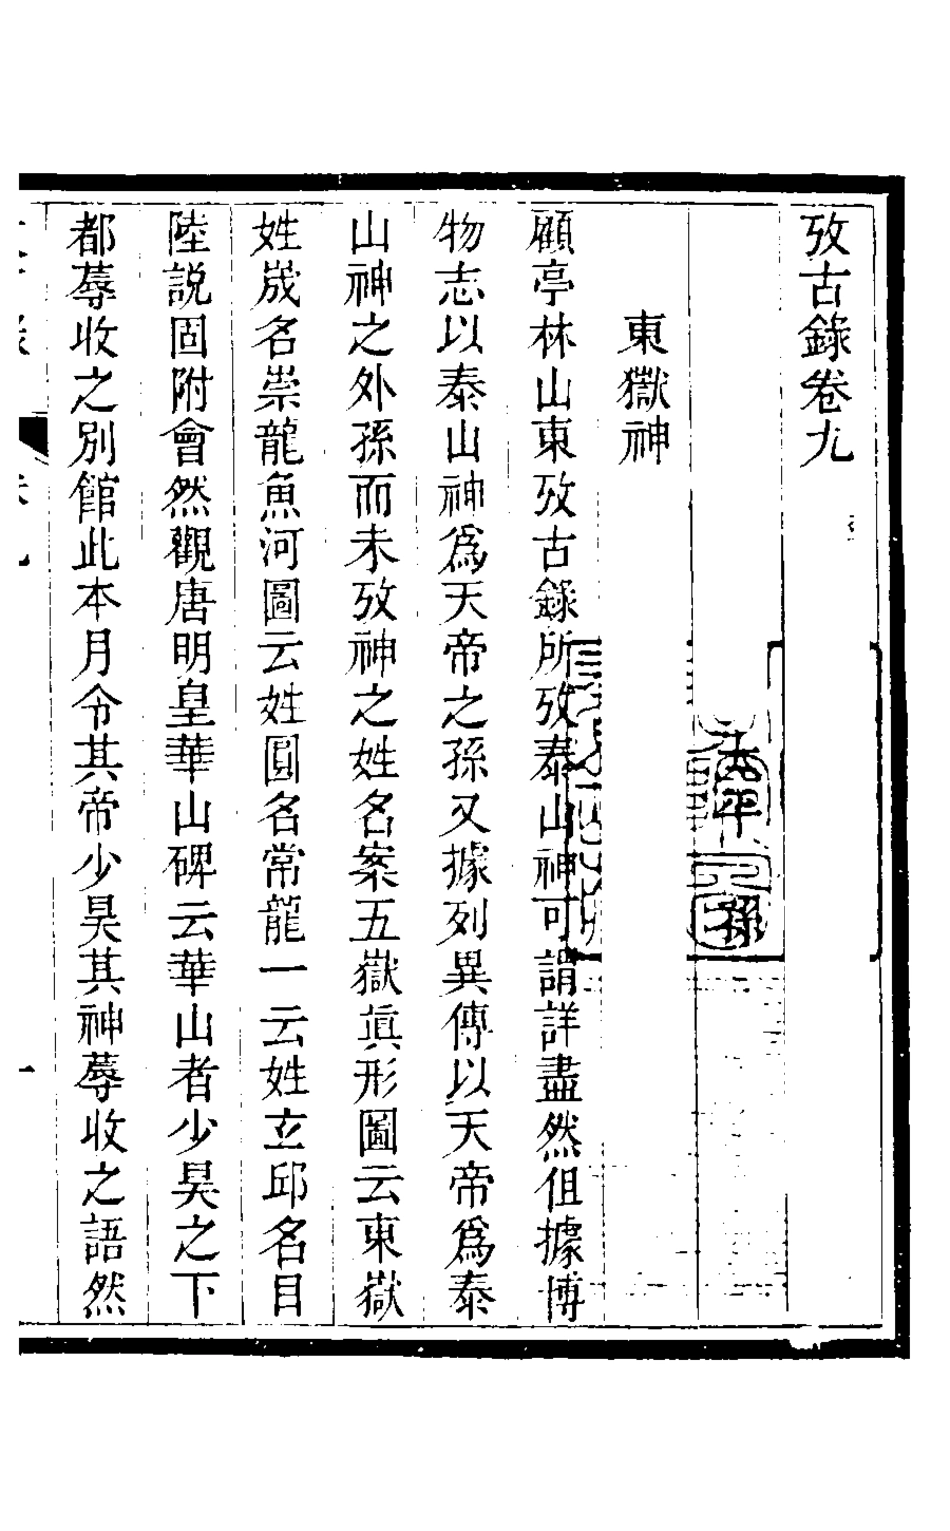 攷古錄卷九
東嶽神
顧亭林山東攷古錄所攷泰山神可謂詳盡然但據博
物志以泰山神爲天帝之孫又據列異傳以天帝爲泰
山神之外孫而未攷神之姓名案五嶽眞形圖云東嶽
姓歲名崇龍魚河圖云姓圓名常龍一云姓玄邱名目
陸説固附會然觀唐明皇華山碑云華山者少昊之下
都蓐收之別館此本月令其帝少昊其神蓐收之語然